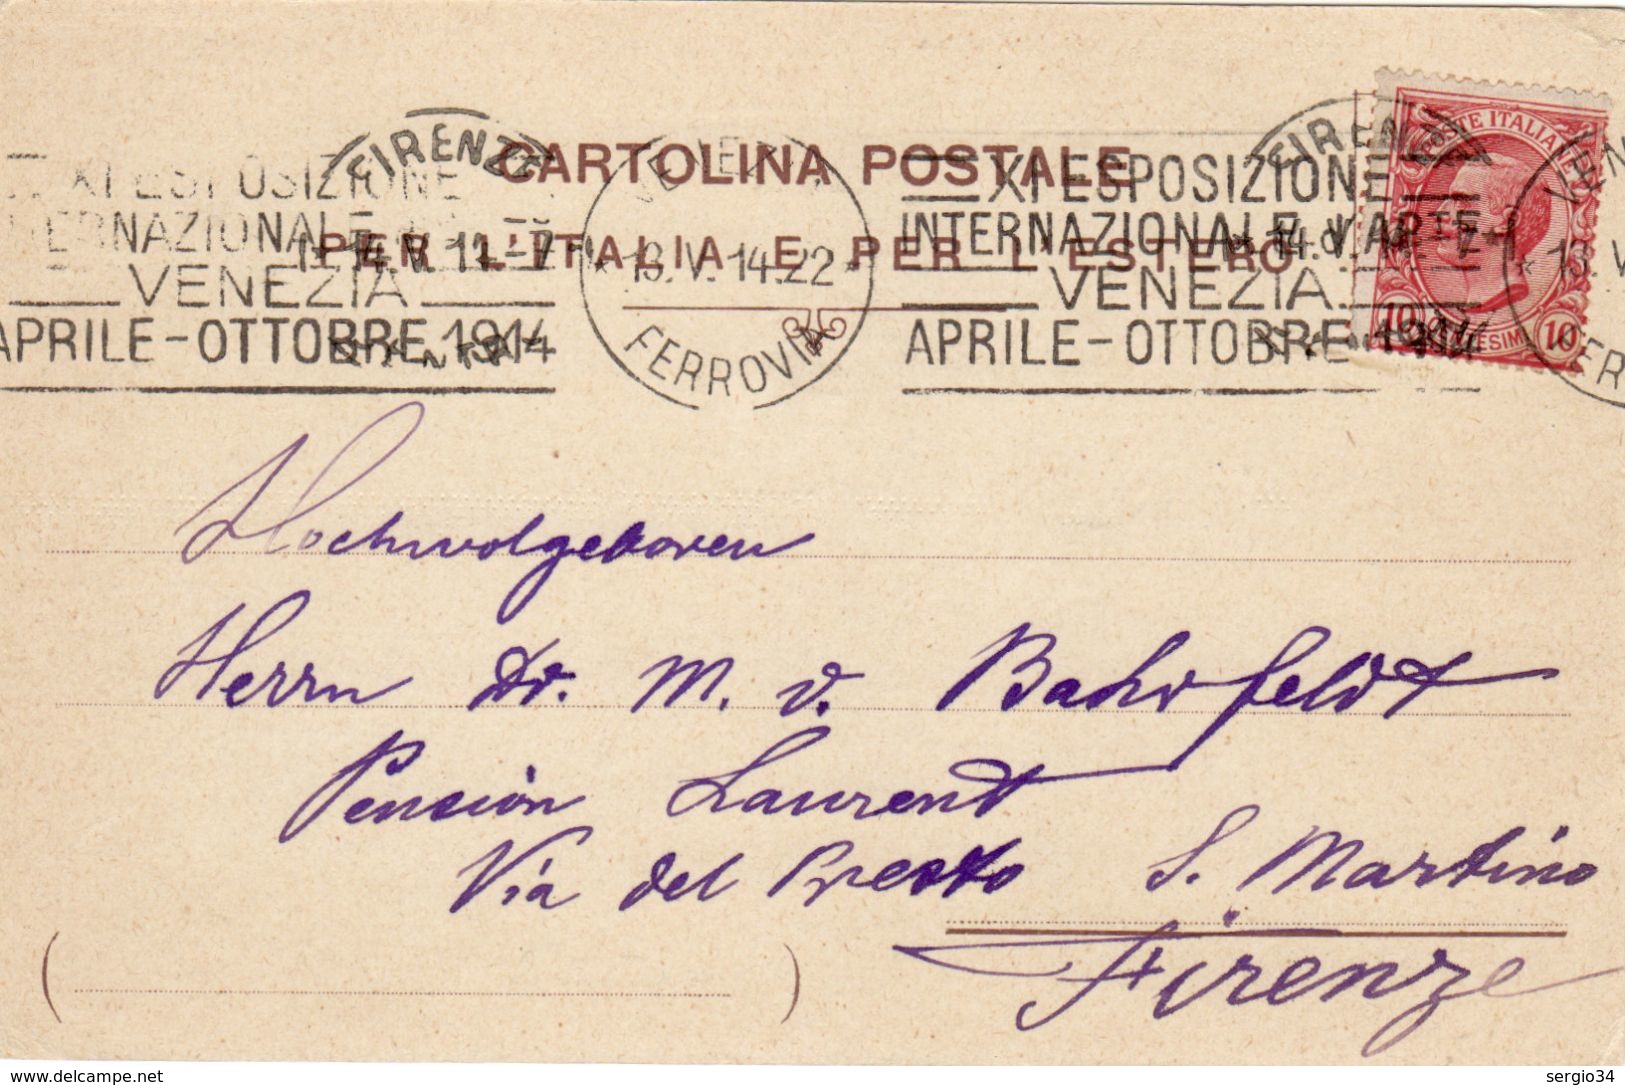 CARTOLINA POSTALE
PER L'ITALIA E PER L'ESTERO
FIRENZE
XI ESPOSIZIONE
INTERNAZIONALE
VENEZIA
APRILE-OTTOBRE 1914
13.V.14.22
FERROVIA
FIRENZE
XI ESPOSIZIONE
INTERNAZIONALE D'ARTE
VENEZIA
APRILE-OTTOBRE 1914
POSTE ITALIANE
10 10
Hochwolgeboren
Herrn Dr. M. v. Bahrfeldt
Pension Laurent
Via del Presto S. Martino
Firenze
www.delcampe.net
sergio34